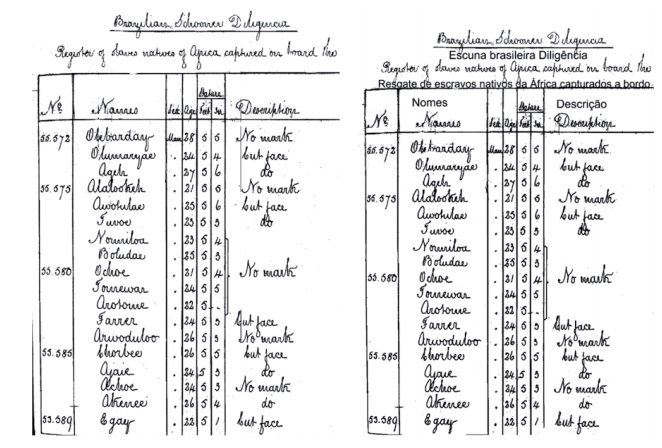 Brazilian Schooner Diligencia
Register of slaves natives of Africa captured on board the
Stature
No. Names Sex Age Feet In. Description
55.572 Man 28 5 5 No mark
. 24 5 4 Cut face
Ageh . 27 5 6 do
55.575 Alalookeh . 21 5 5 No mark
Awohulae . 25 5 6 Cut face
Tuvoe . 23 5 3 do
. 23 5 4
Boludae . 25 5 3
55.580 Ochoe . 21 5 4 No mark
Fornewar . 24 5 5
. 22 5 .
Farrer . 24 5 3 Cut face
Arwoduloo . 26 5 3 No mark
55.585 Chorbee . 26 5 5 Cut face
Ajaie . 24 5 3 do
Alchoe . 24 5 3 No mark
. 26 5 4 do
55.589 Egay . 22 5 1 Cut face
Brazilian Schooner Diligencia
Escuna brasileira Diligência
Register of slaves natives of Africa captured on board the
Resgate de escravos nativos da África capturados a bordo
Stature
Nomes Descrição
No. Names Sex Age Feet In. Description
55.572 Man 28 5 5 No mark
. 24 5 4 Cut face
Ageh . 27 5 6 do
55.575 Alalookeh . 21 5 5 No mark
Awohulae . 25 5 6 Cut face
Tuvoe . 23 5 3 do
. 23 5 4
Boludae . 25 5 3
55.580 Ochoe . 21 5 4 No mark
Fornewar . 24 5 5
. 22 5 .
Farrer . 24 5 3 Cut face
Arwoduloo . 26 5 3 No mark
55.585 Chorbee . 26 5 5 Cut face
Ajaie . 24 5 3 do
Alchoe . 24 5 3 No mark
. 26 5 4 do
55.589 Egay . 22 5 1 Cut face